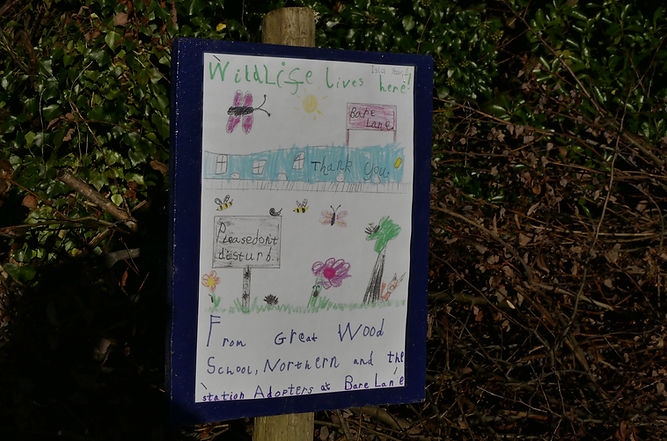 WildLife lives here!
Bare
Lane
Thank you.
Please dont
disturb.
From Great Wood
School, Northern and the
station Adopters at Bare Lane